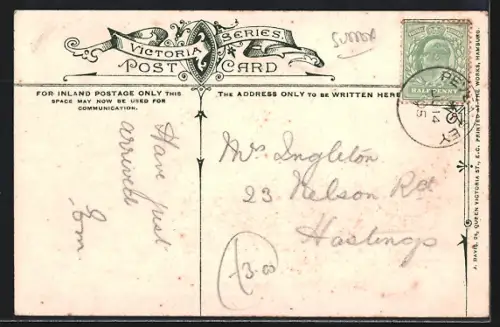 VICTORIA SERIES.
POST CARD
SUSSEX
HALFPENNY
PEVENSEY
14
05
FOR INLAND POSTAGE ONLY THIS
SPACE MAY NOW BE USED FOR
COMMUNICATION.
THE ADDRESS ONLY TO BE WRITTEN HERE
Have just
arrived
Em
Mrs Ingleton
23 Nelson Rd
Hastings
3-00
J. DAVIS, 24, QUEEN VICTORIA ST., E.C. PRINTED AT THE WORKS, HAMBURG.